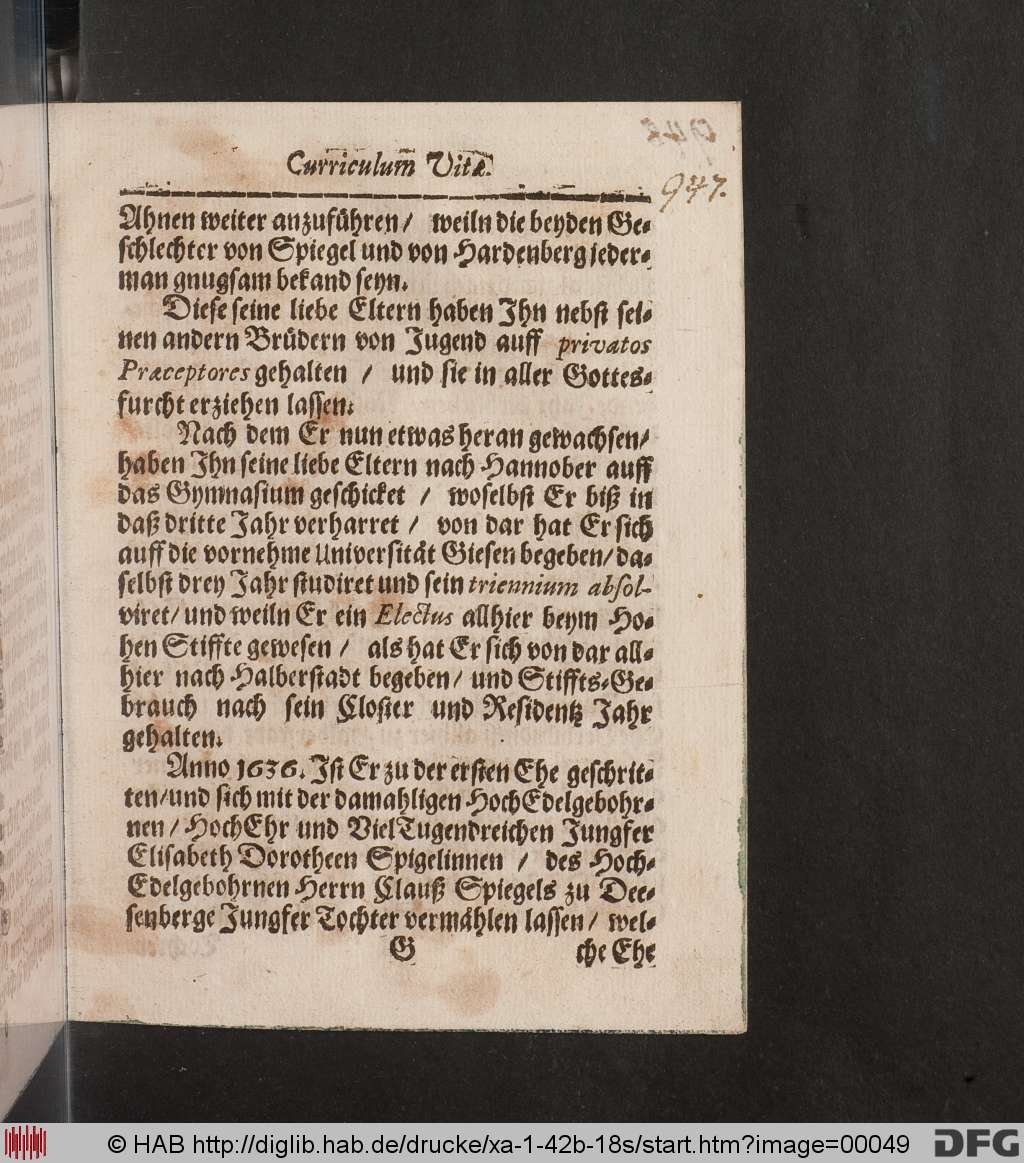 Curriculum Vitæ.
947.
Ahnen weiter anzuführen / weiln die beyden Ge-
schlechter von Spiegel und von Hardenberg jeder-
man gnugsam bekand seyn.
Diese seine liebe Eltern haben Ihn nebst sei-
nen andern Brüdern von Jugend auff privatos
Præceptores gehalten / und sie in aller Gottes-
furcht erziehen lassen.
Nach dem Er nun etwas heran gewachsen/
haben Ihn seine liebe Eltern nach Hannober auff
das Gymnasium geschicket / woselbst Er biß in
daß dritte Jahr verharret / von dar hat Er sich
auff die vornehme Universität Giesen begeben/ da-
selbst drey Jahr studiret und sein triennium absol-
viret/ und weiln Er ein Electus allhier beym Ho-
hen Stiffte gewesen / als hat Er sich von dar all-
hier nach Halberstadt begeben/ und Stiffts-Ge-
brauch nach sein Closter und Residentz Jahr
gehalten.
Anno 1636. Ist Er zu der ersten Ehe geschrit-
ten/und sich mit der damahligen HochEdelgebohr-
nen / HochEhr und VielTugendreichen Jungfer
Elisabeth Dorotheen Spigelinnen / des Hoch-
Edelgebohrnen Herrn Clauß Spiegels zu Dee-
senberge Jungfer Tochter vermählen lassen/ wel-
G che Ehe
© HAB http://diglib.hab.de/drucke/xa-1-42b-18s/start.htm?image=00049 DFG